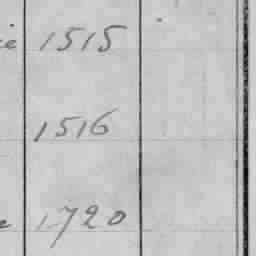 1515
1516
1720